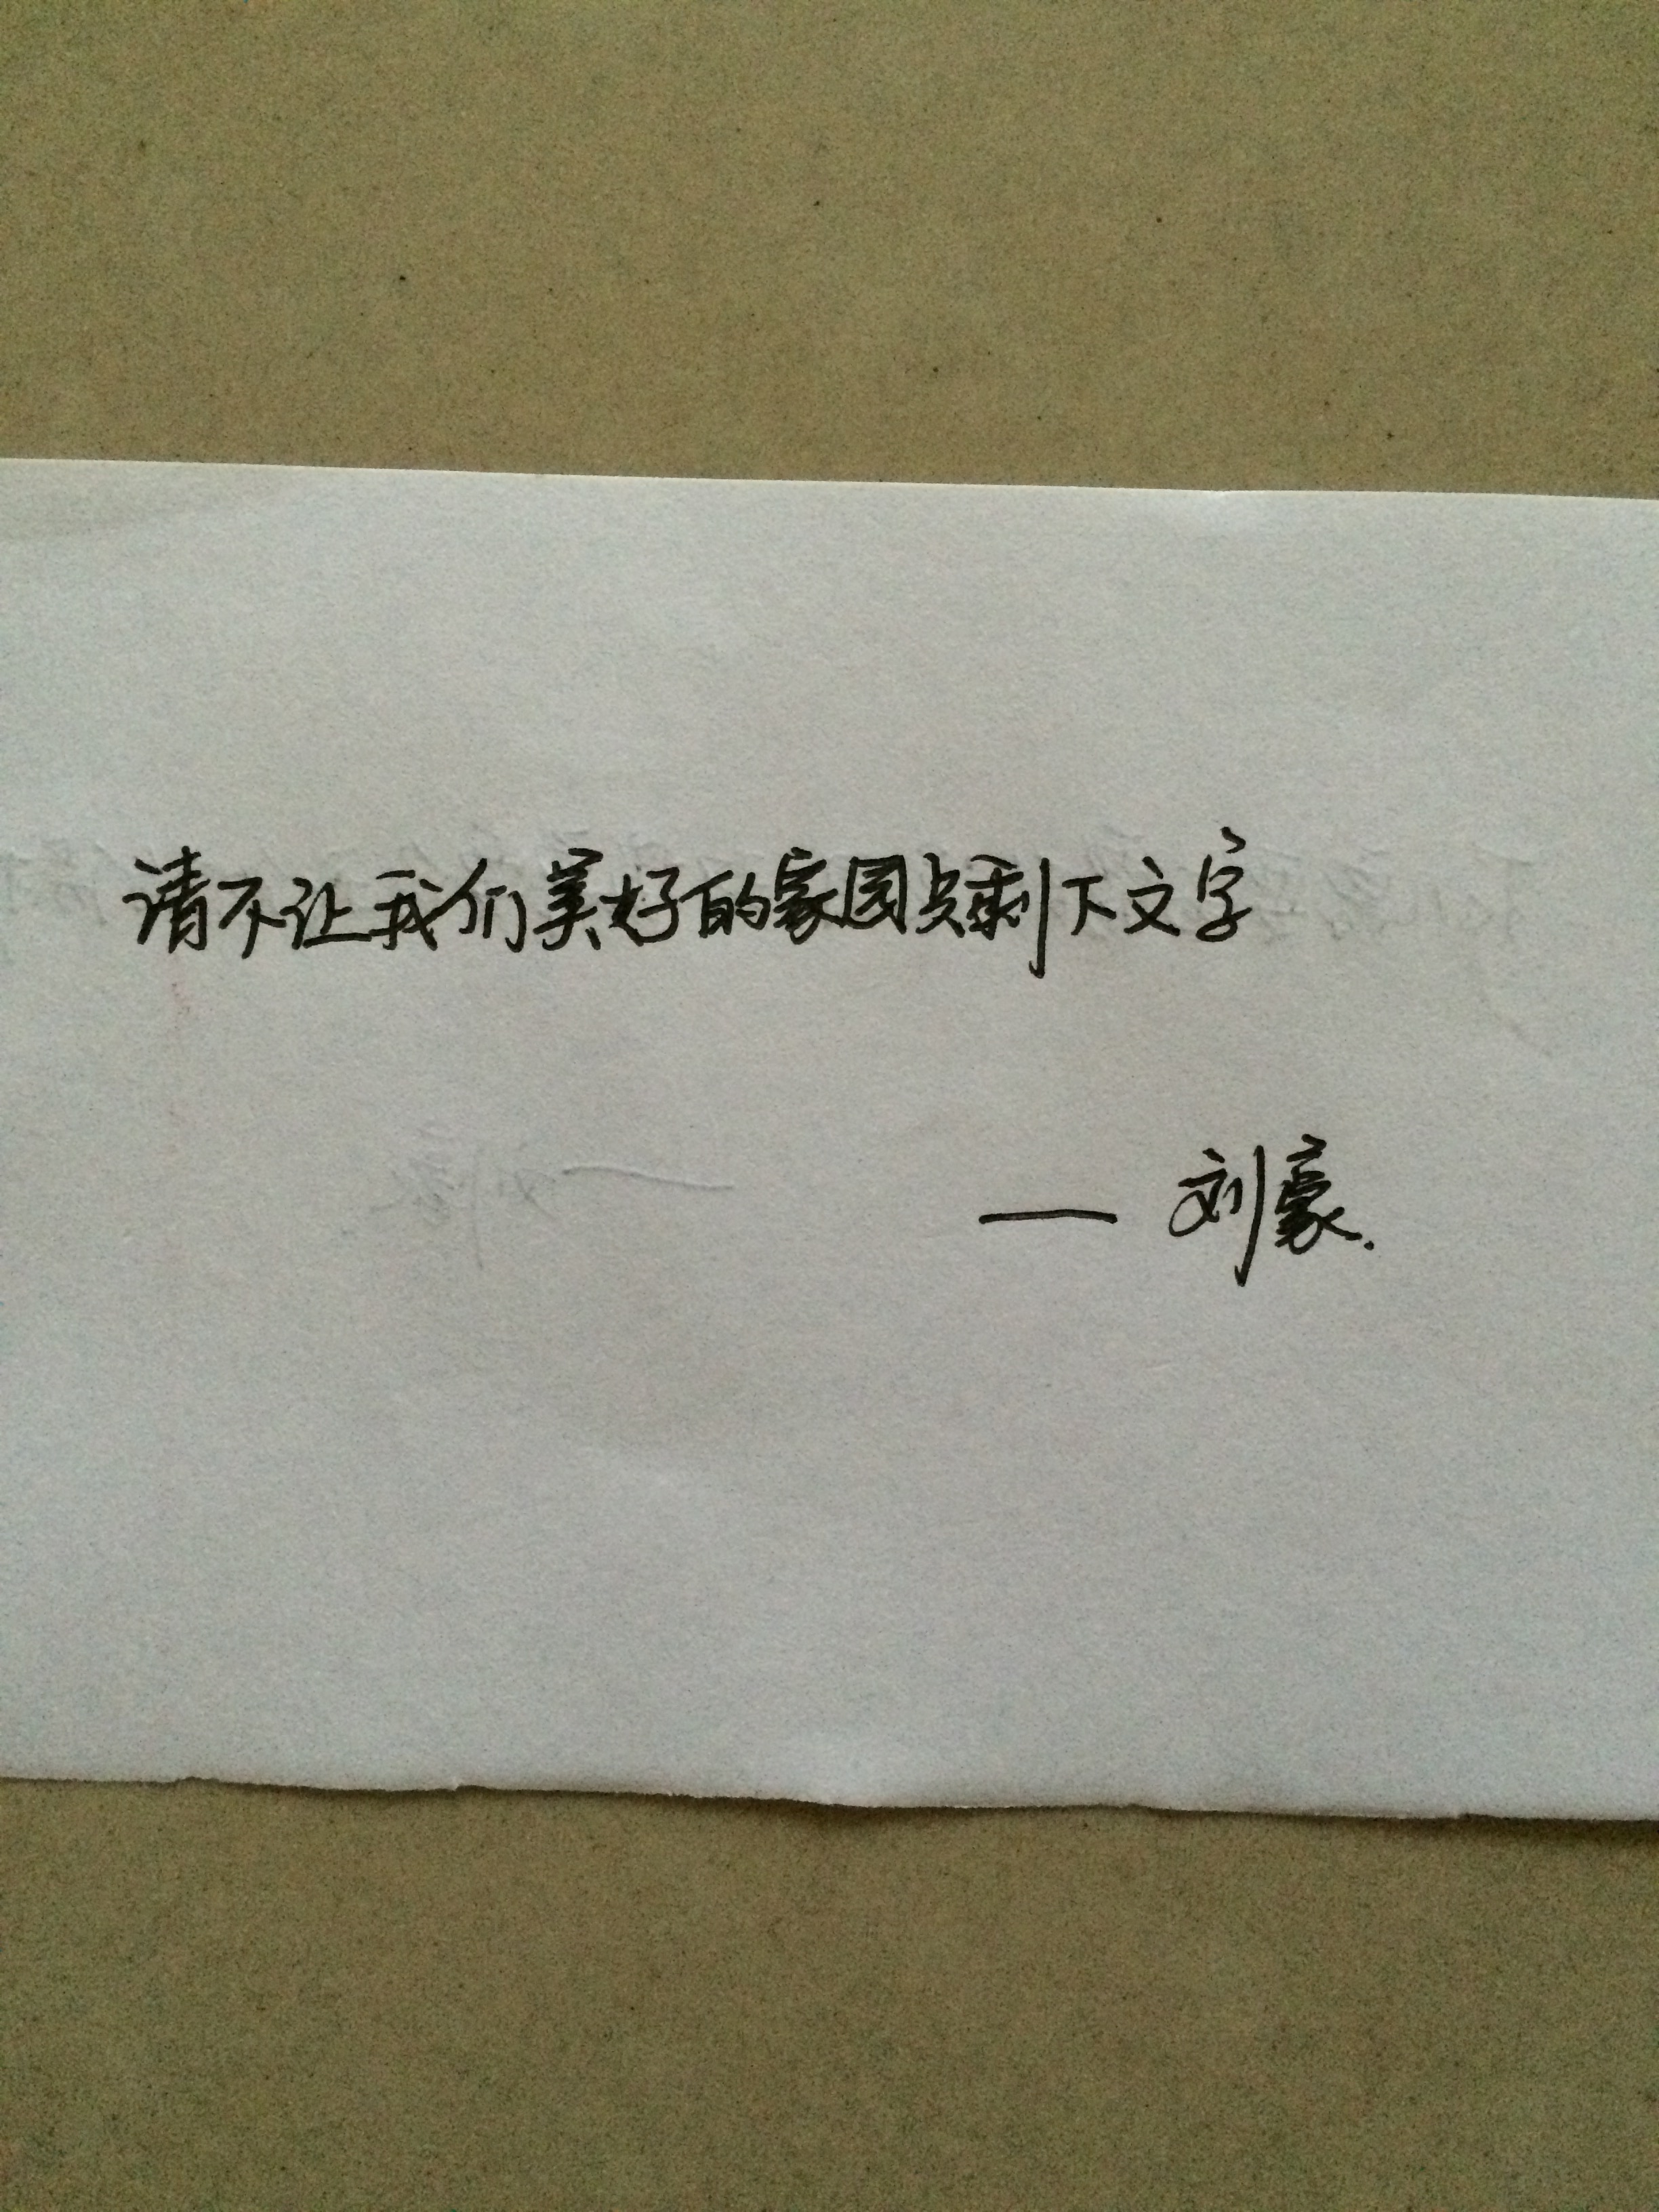 请不让我们美好的家园只剩下文字
— 刘豪.